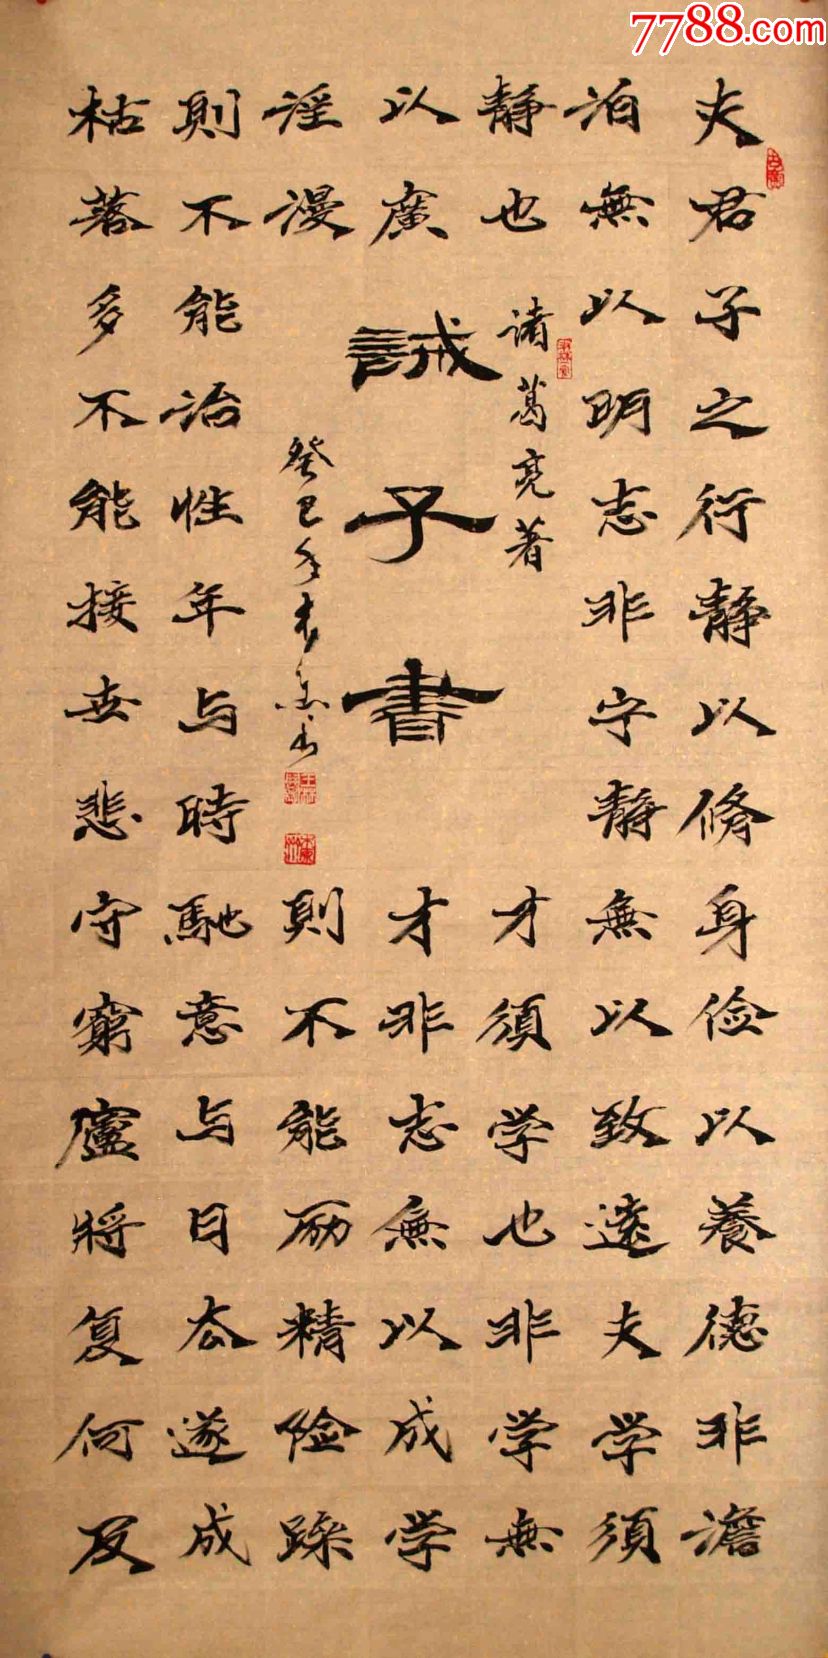 7788.com
夫君子之行静以脩身俭以養德非澹
泊無以明志非宁静無以致遠夫学須
静也
才須学也非学無
以廣
才非志無以成学
淫漫
則不能励精险躁
則不能治性年与時馳意与日去遂成
枯落多不能接世悲守窮廬將复何及
諸葛亮著
誡子書
癸巳年